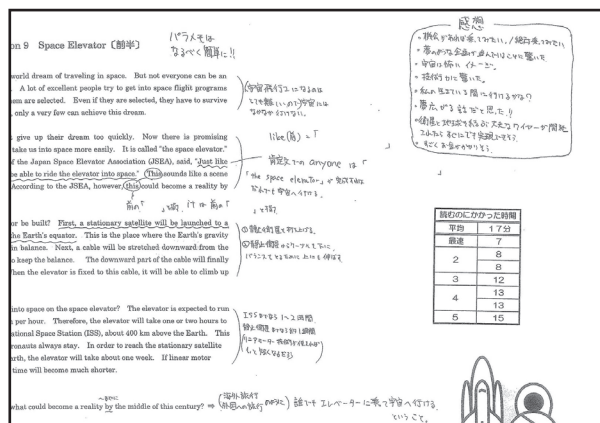 on 9 Space Elevator〔前半〕
パラメモは
なるべく簡単に!!
world dream of traveling in space. But not everyone can be an
A lot of excellent people try to get into space flight programs
em are selected. Even if they are selected, they have to survive
, only a very few can achieve this dream.
give up their dream too quickly. Now there is promising
take us into space more easily. It is called "the space elevator."
of the Japan Space Elevator Association (JSEA), said, "Just like
be able to ride the elevator into space." This sounds like a scene
According to the JSEA, however, this could become a reality by
like (前) = 「
前文での anyone は「
」
"the space elevator" が完成すれば
だれでも宇宙へ行ける。
」と指す
r be built? First, a stationary satellite will be launched to a
the Earth's equator. This is the place where the Earth's gravity
in balance. Next, a cable will be stretched downward from the
o keep the balance. The downward part of the cable will finally
hen the elevator is fixed to this cable, it will be able to climb up
into space on the space elevator? The elevator is expected to run
per hour. Therefore, the elevator will take one or two hours to
ational Space Station (ISS), about 400 km above the Earth. This
ronauts always stay. In order to reach the stationary satellite
arth, the elevator will take about one week. If linear motor
time will become much shorter.
what could become a reality by the middle of this century? ⇒
〜までに
海外旅行
外国への旅行
のように
誰でもエレベーターに乗って宇宙へ行ける
ということ。
感想
・機会があれば乗ってみたい。/絶対乗ってみたい
・宇宙は怖いイメージ。
・技術力に驚いた。
・私の生きている間に行けるかな?
・夢広がる話だと思った!!
・すごくお金かかりそう。
読むのにかかった時間
平均 17分
最速 7
2 8
8
3 12
4 13
13
5 15